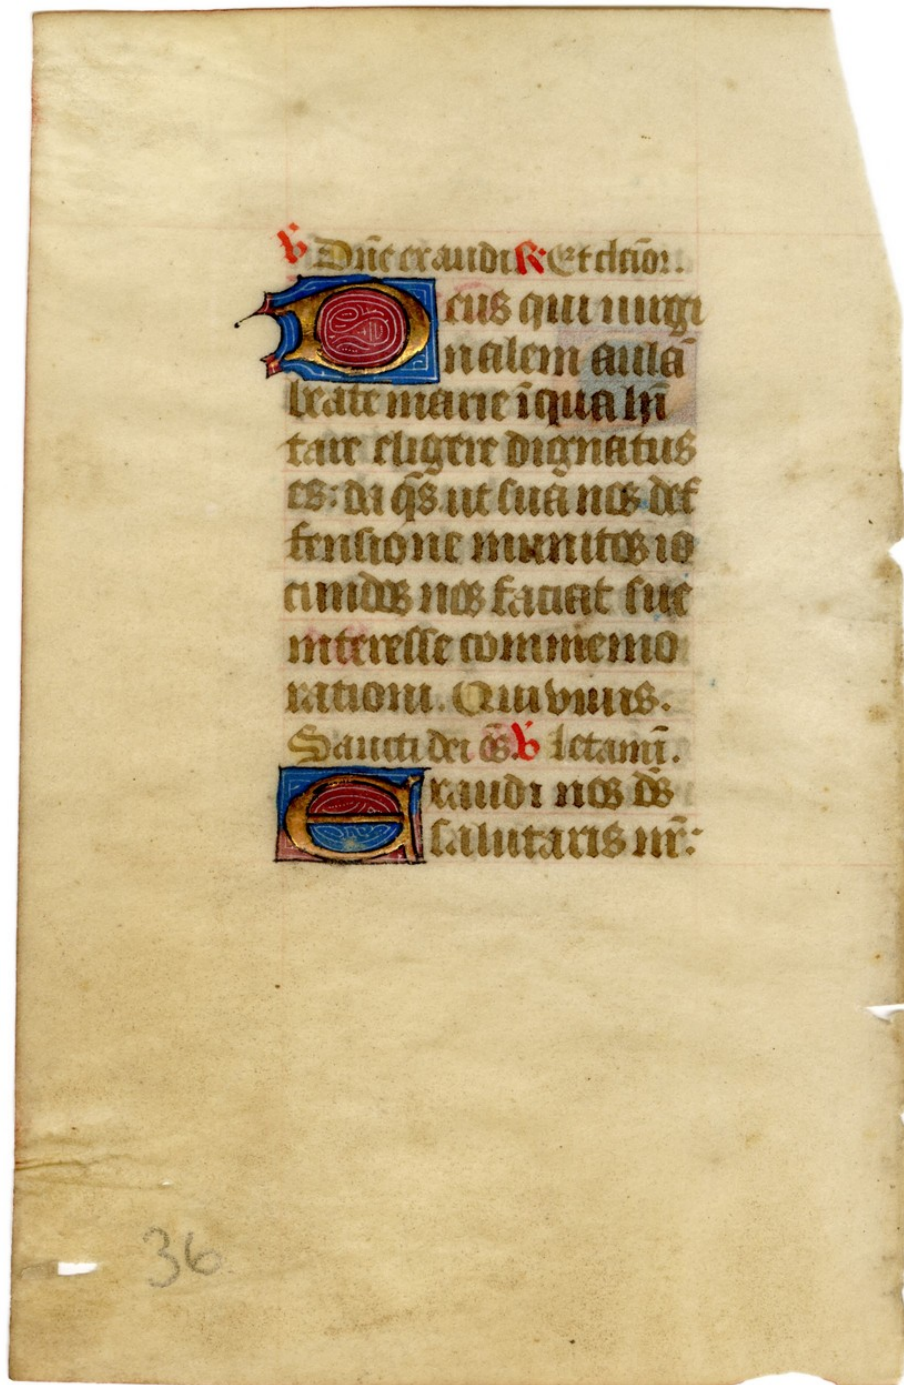 ℣ Dn̄e exaudi ℟ Et clam̄or.
Deus qui uirgi
nalem aulā
beate marie ī qua hī
tare eligere dignatus
es: da q̄s. ut sua nos def
fensione munitos io
cundos nos faciat sue
interesse commemo
rationi. Qui viuis.
Sancti dei ō̄s. ℣ letamī.
Exaudi nos ds̄
salutaris nr̄:
36